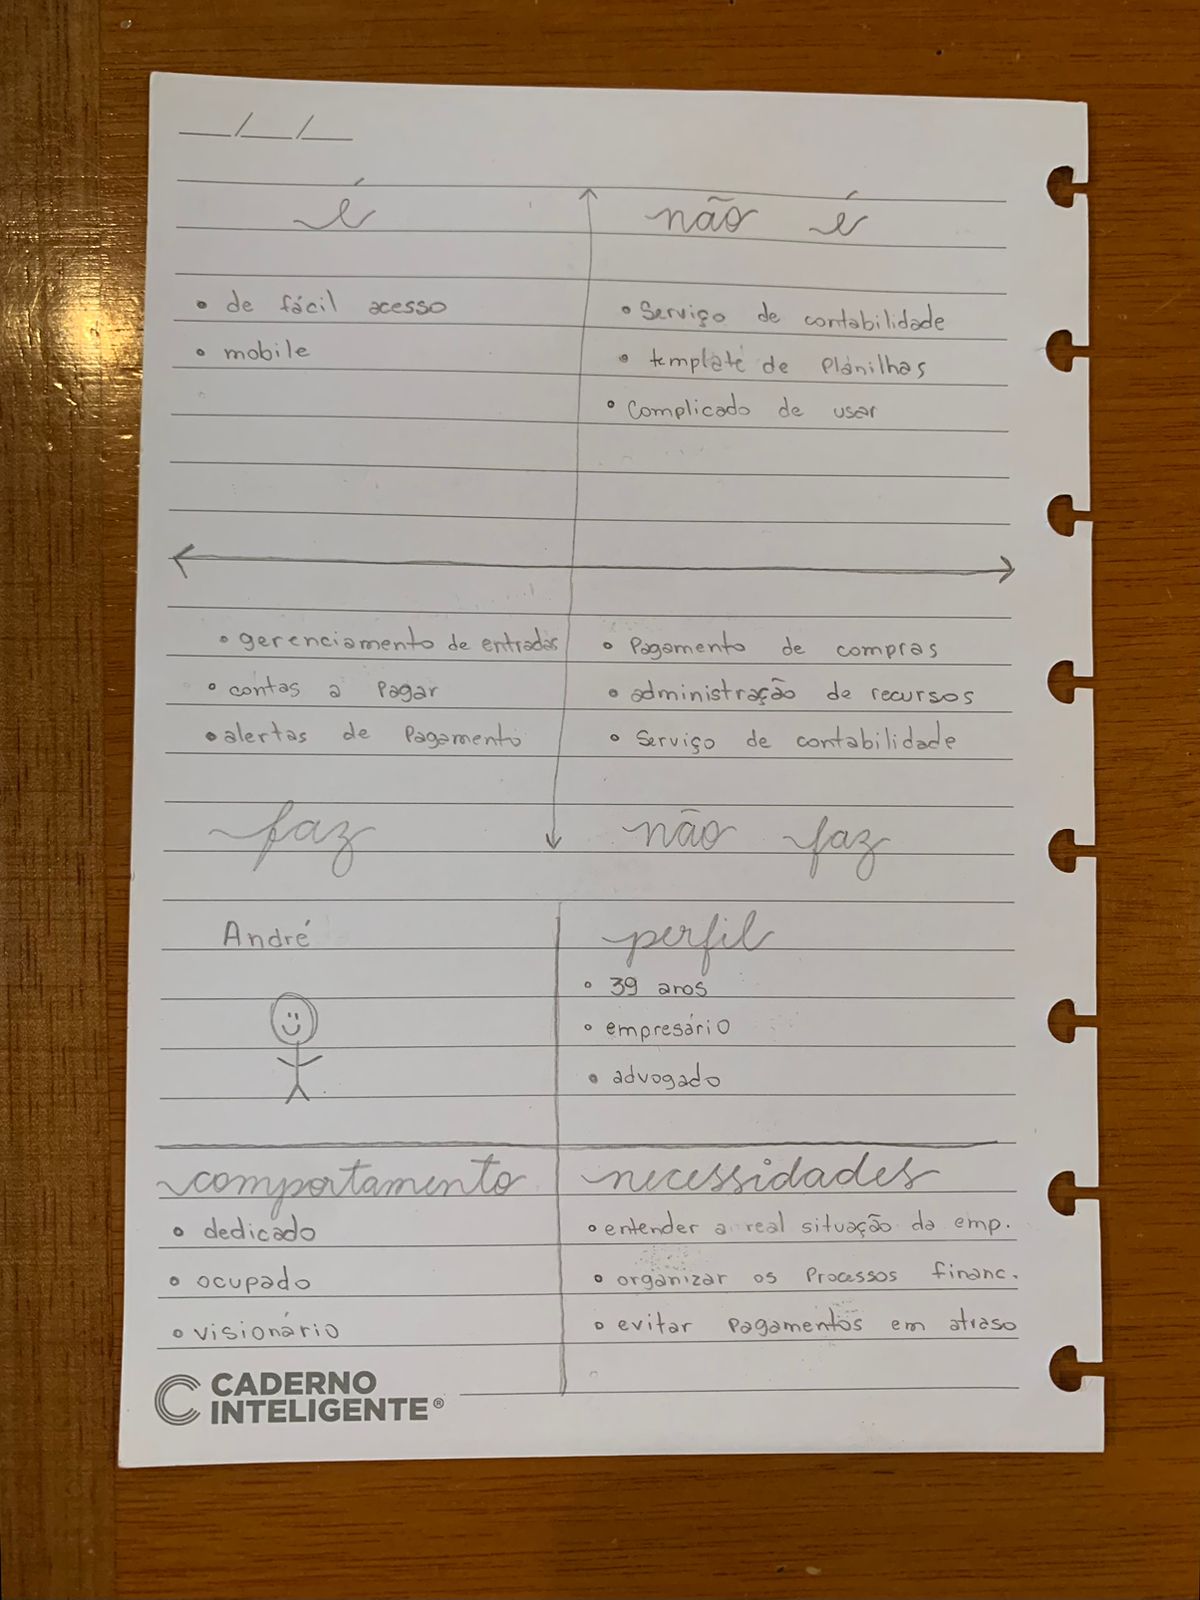 __/__/__
é
não é
• de fácil acesso
• mobile
• Serviço de contabilidade
• template de Planilhas
• Complicado de usar
• gerenciamento de entradas
• contas a Pagar
• alertas de Pagamento
• Pagamento de compras
• administração de recursos
• Serviço de contabilidade
faz
não faz
André
perfil
• 39 anos
• empresário
• advogado
comportamento
• dedicado
• ocupado
• visionário
necessidades
• entender a real situação da emp.
• organizar os Processos financ.
• evitar Pagamentos em atraso
CADERNO
INTELIGENTE®